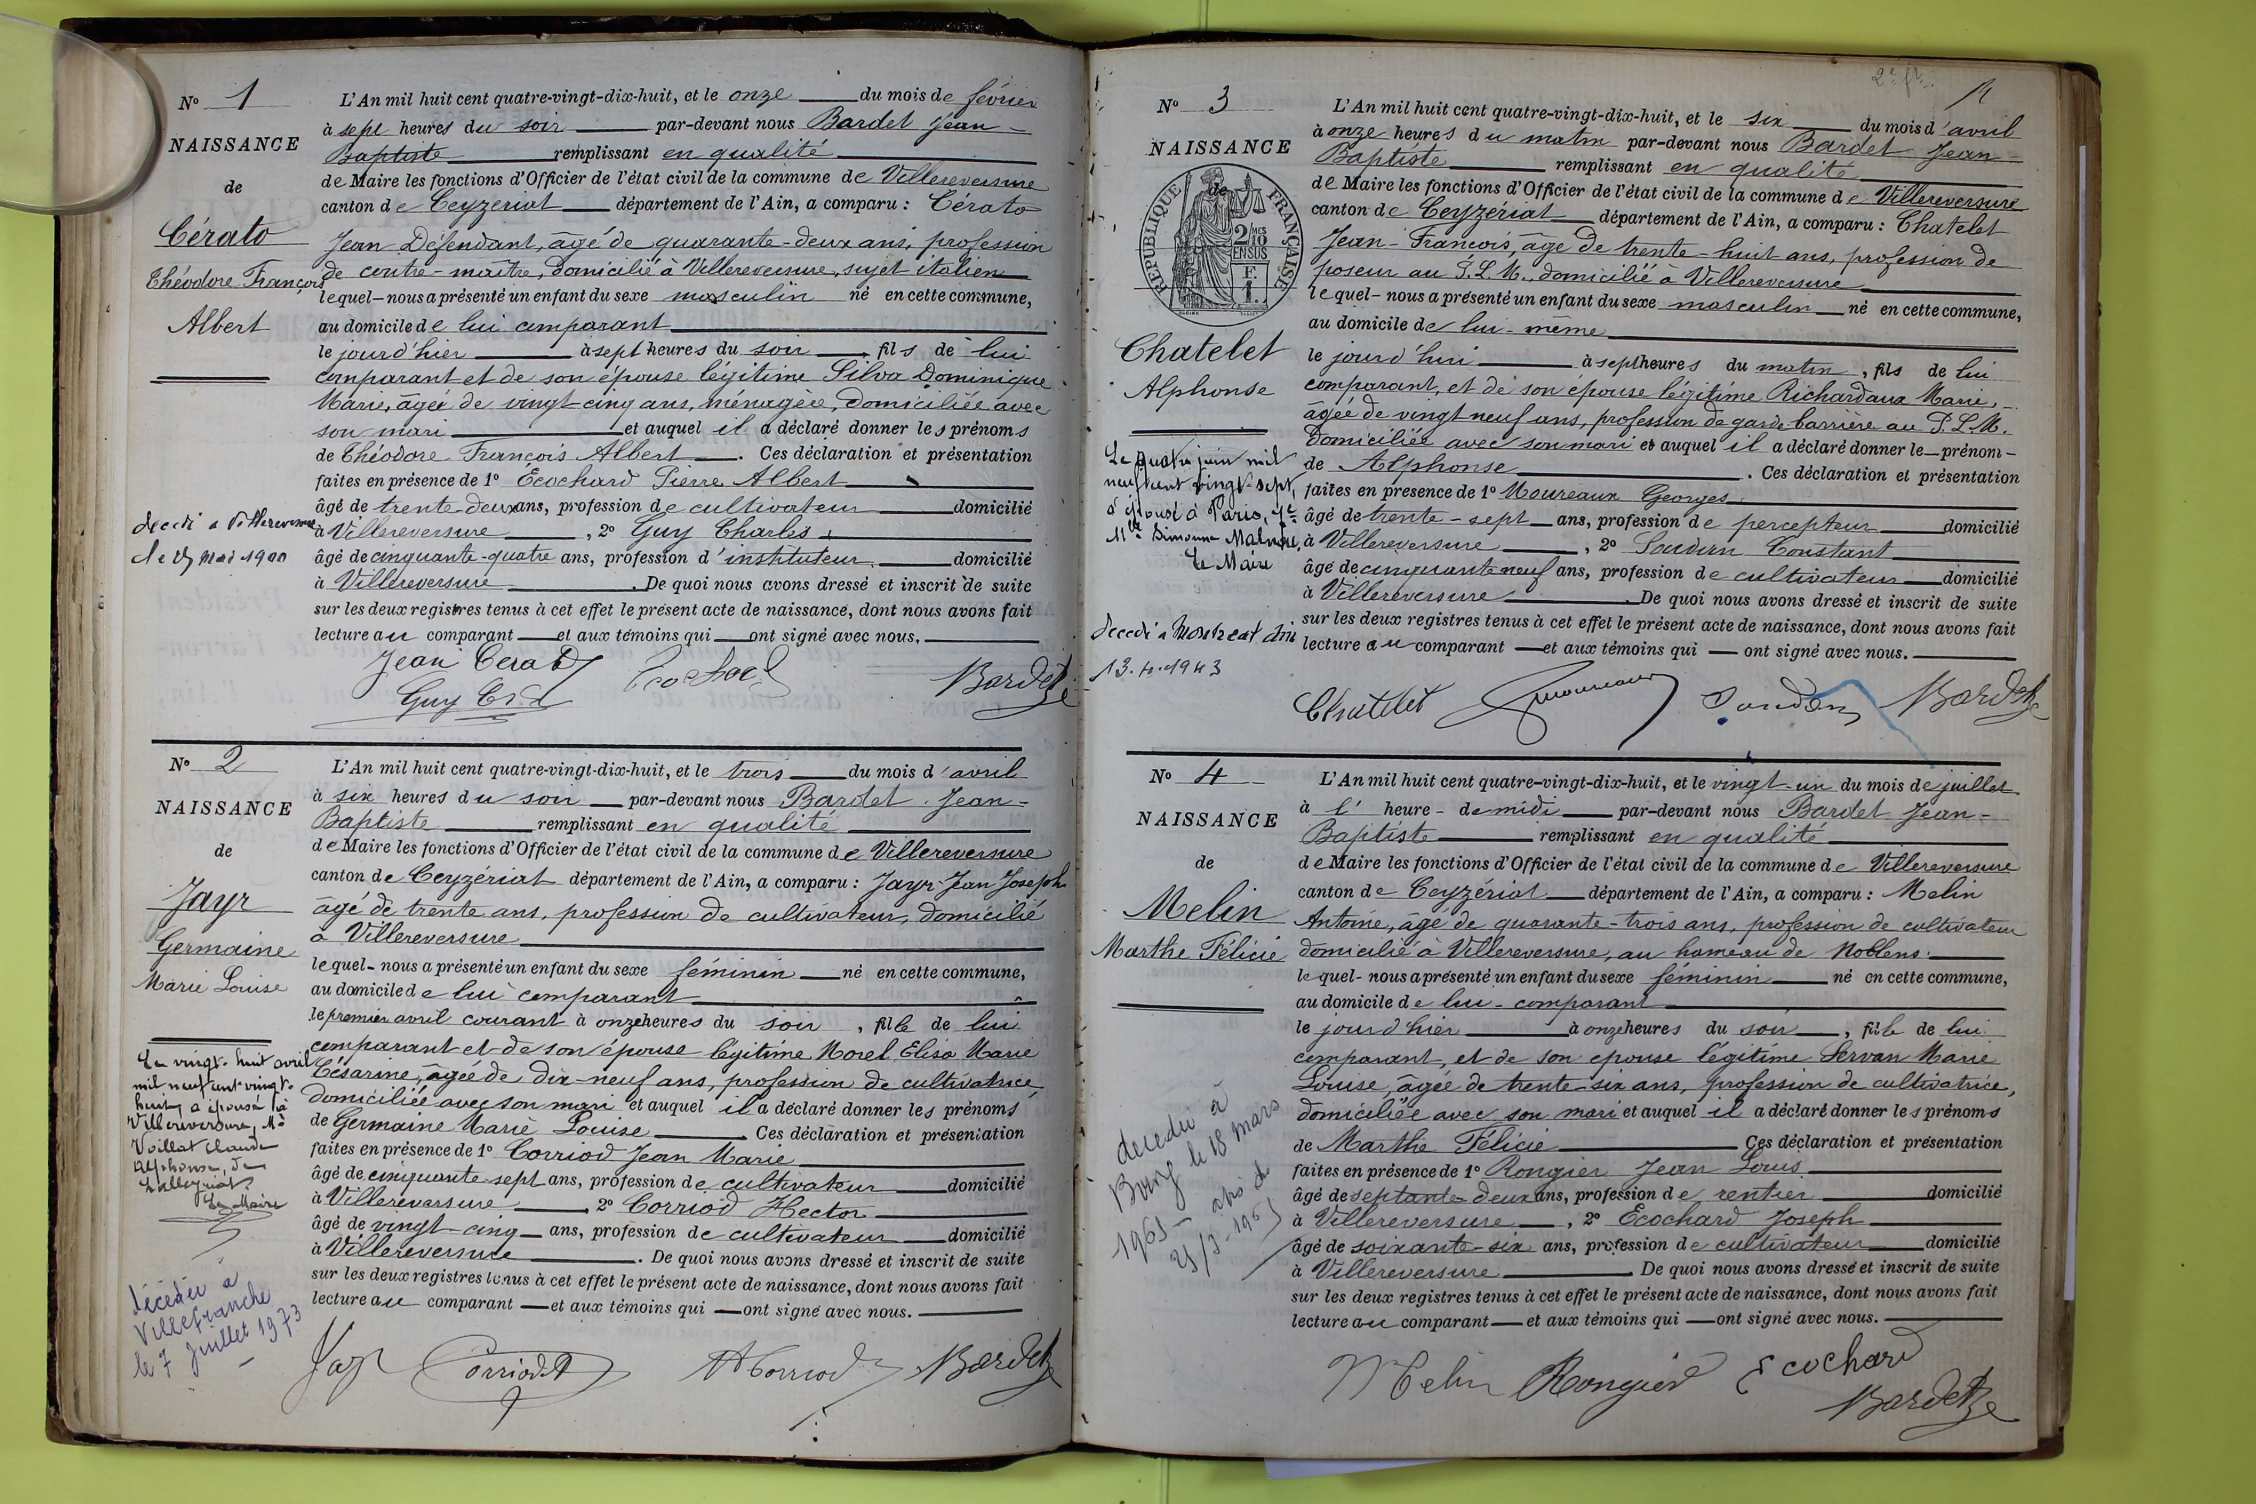 N° 1
NAISSANCE
de
Cérato
Théodore François
Albert
décédé à Villereversure
le mai 1900
L'An mil huit cent quatre-vingt-dix-huit, et le onze du mois de février
à sept heures du soir par-devant nous Bardet Jean-
Baptiste remplissant en qualité
de Maire les fonctions d'Officier de l'état civil de la commune de Villereversure
canton de Ceyzériat département de l'Ain, a comparu : Cérato
Jean Défendant, âgé de quarante-deux ans, profession
de contre-maître, domicilié à Villereversure, sujet italien
lequel - nous a présenté un enfant du sexe masculin né en cette commune,
au domicile de lui comparant
le jourd'hier à sept heures du soir, fils de lui
comparant et de son épouse légitime Silva Dominique
Marie, âgée de vingt-cinq ans, ménagère, domiciliée avec
son mari et auquel il a déclaré donner les prénoms
de Théodore François Albert. Ces déclaration et présentation
faites en présence de 1° Ecochard Pierre Albert
âgé de trente-deux ans, profession de cultivateur domicilié
à Villereversure, 2° Guy Charles
âgé de cinquante-quatre ans, profession d'instituteur domicilié
à Villereversure. De quoi nous avons dressé et inscrit de suite
sur les deux registres tenus à cet effet le présent acte de naissance, dont nous avons fait
lecture au comparant et aux témoins qui ont signé avec nous.
Jean Cerato Ecochard Bardet
Guy Ch
N° 2
NAISSANCE
de
Jayr
Germaine
Marie Louise
Le vingt-huit avril
mil neuf cent vingt-
huit, a épousé à
Villereversure, Mr
Vaillat Claude
Alphonse, de
Le Maire
décédée à
Villefranche
le 7 juillet 1973
L'An mil huit cent quatre-vingt-dix-huit, et le trois du mois d'avril
à six heures du soir par-devant nous Bardet Jean-
Baptiste remplissant en qualité
de Maire les fonctions d'Officier de l'état civil de la commune de Villereversure
canton de Ceyzériat département de l'Ain, a comparu : Jayr Jean Joseph
âgé de trente ans, profession de cultivateur, domicilié
à Villereversure
lequel - nous a présenté un enfant du sexe féminin né en cette commune,
au domicile de lui comparant
le premier avril courant à onze heures du soir, fille de lui
comparant et de son épouse légitime Morel Elisa Marie
Césarine, âgée de dix-neuf ans, profession de cultivatrice,
domiciliée avec son mari et auquel il a déclaré donner les prénoms
de Germaine Marie Louise Ces déclaration et présentation
faites en présence de 1° Corriod Jean Marie
âgé de cinquante sept ans, profession de cultivateur domicilié
à Villereversure 2° Corriod Hector
âgé de vingt-cinq ans, profession de cultivateur domicilié
à Villereversure. De quoi nous avons dressé et inscrit de suite
sur les deux registres tenus à cet effet le présent acte de naissance, dont nous avons fait
lecture au comparant et aux témoins qui ont signé avec nous.
Jayr Corriod H Corriod Bardet
N° 3
NAISSANCE
de
RÉPUBLIQUE FRANÇAISE
2/10 MES
EN SUS
F.
1.
Chatelet
Alphonse
Le quatre juin mil
neuf cent vingt-sept,
a épousé à Paris,
Mlle Simonne
Le Maire
Décédé à Montreal
1943
L'An mil huit cent quatre-vingt-dix-huit, et le six du mois d'avril
à onze heures du matin par-devant nous Bardet Jean-
Baptiste remplissant en qualité
de Maire les fonctions d'Officier de l'état civil de la commune de Villereversure
canton de Ceyzériat département de l'Ain, a comparu : Chatelet
Jean-François, âgé de trente-huit ans, profession de
poseur au P. L. M., domicilié à Villereversure
lequel - nous a présenté un enfant du sexe masculin né en cette commune,
au domicile de lui-même
le jourd'hui à sept heures du matin, fils de lui
comparant, et de son épouse légitime Richardaux Marie,
âgée de vingt neuf ans, profession de garde-barrière au P. L. M.
domiciliée avec son mari et auquel il a déclaré donner le prénom
de Alphonse. Ces déclaration et présentation
faites en présence de 1° Moureaux Georges
âgé de trente-sept ans, profession de percepteur domicilié
à Villereversure, 2° Constant
âgé de cinquante neuf ans, profession de cultivateur domicilié
à Villereversure De quoi nous avons dressé et inscrit de suite
sur les deux registres tenus à cet effet le présent acte de naissance, dont nous avons fait
lecture au comparant et aux témoins qui ont signé avec nous.
Chatelet Moureaux Bardet
N° 4
NAISSANCE
de
Melin
Marthe Félicie
décédée à
Bourg le 18 mars
1965 avis de
25/3-1965
L'An mil huit cent quatre-vingt-dix-huit, et le vingt-un du mois de juillet
à l'heure de midi par-devant nous Bardet Jean-
Baptiste remplissant en qualité
de Maire les fonctions d'Officier de l'état civil de la commune de Villereversure
canton de Ceyzériat département de l'Ain, a comparu : Melin
Antoine, âgé de quarante-trois ans, profession de cultivateur
domicilié à Villereversure, au hameau de Noblens
lequel - nous a présenté un enfant du sexe féminin né en cette commune,
au domicile de lui-comparant
le jourd'hier à onze heures du soir, fille de lui
comparant, et de son épouse légitime Servan Marie
Louise, âgée de trente-six ans, profession de cultivatrice,
domiciliée avec son mari et auquel il a déclaré donner les prénoms
de Marthe Félicie Ces déclaration et présentation
faites en présence de 1° Rongier Jean Louis
âgé de septante-deux ans, profession de rentier domicilié
à Villereversure, 2° Ecochard Joseph
âgé de soixante-six ans, profession de cultivateur domicilié
à Villereversure. De quoi nous avons dressé et inscrit de suite
sur les deux registres tenus à cet effet le présent acte de naissance, dont nous avons fait
lecture au comparant et aux témoins qui ont signé avec nous.
Melin Rongier Ecochard
Bardet